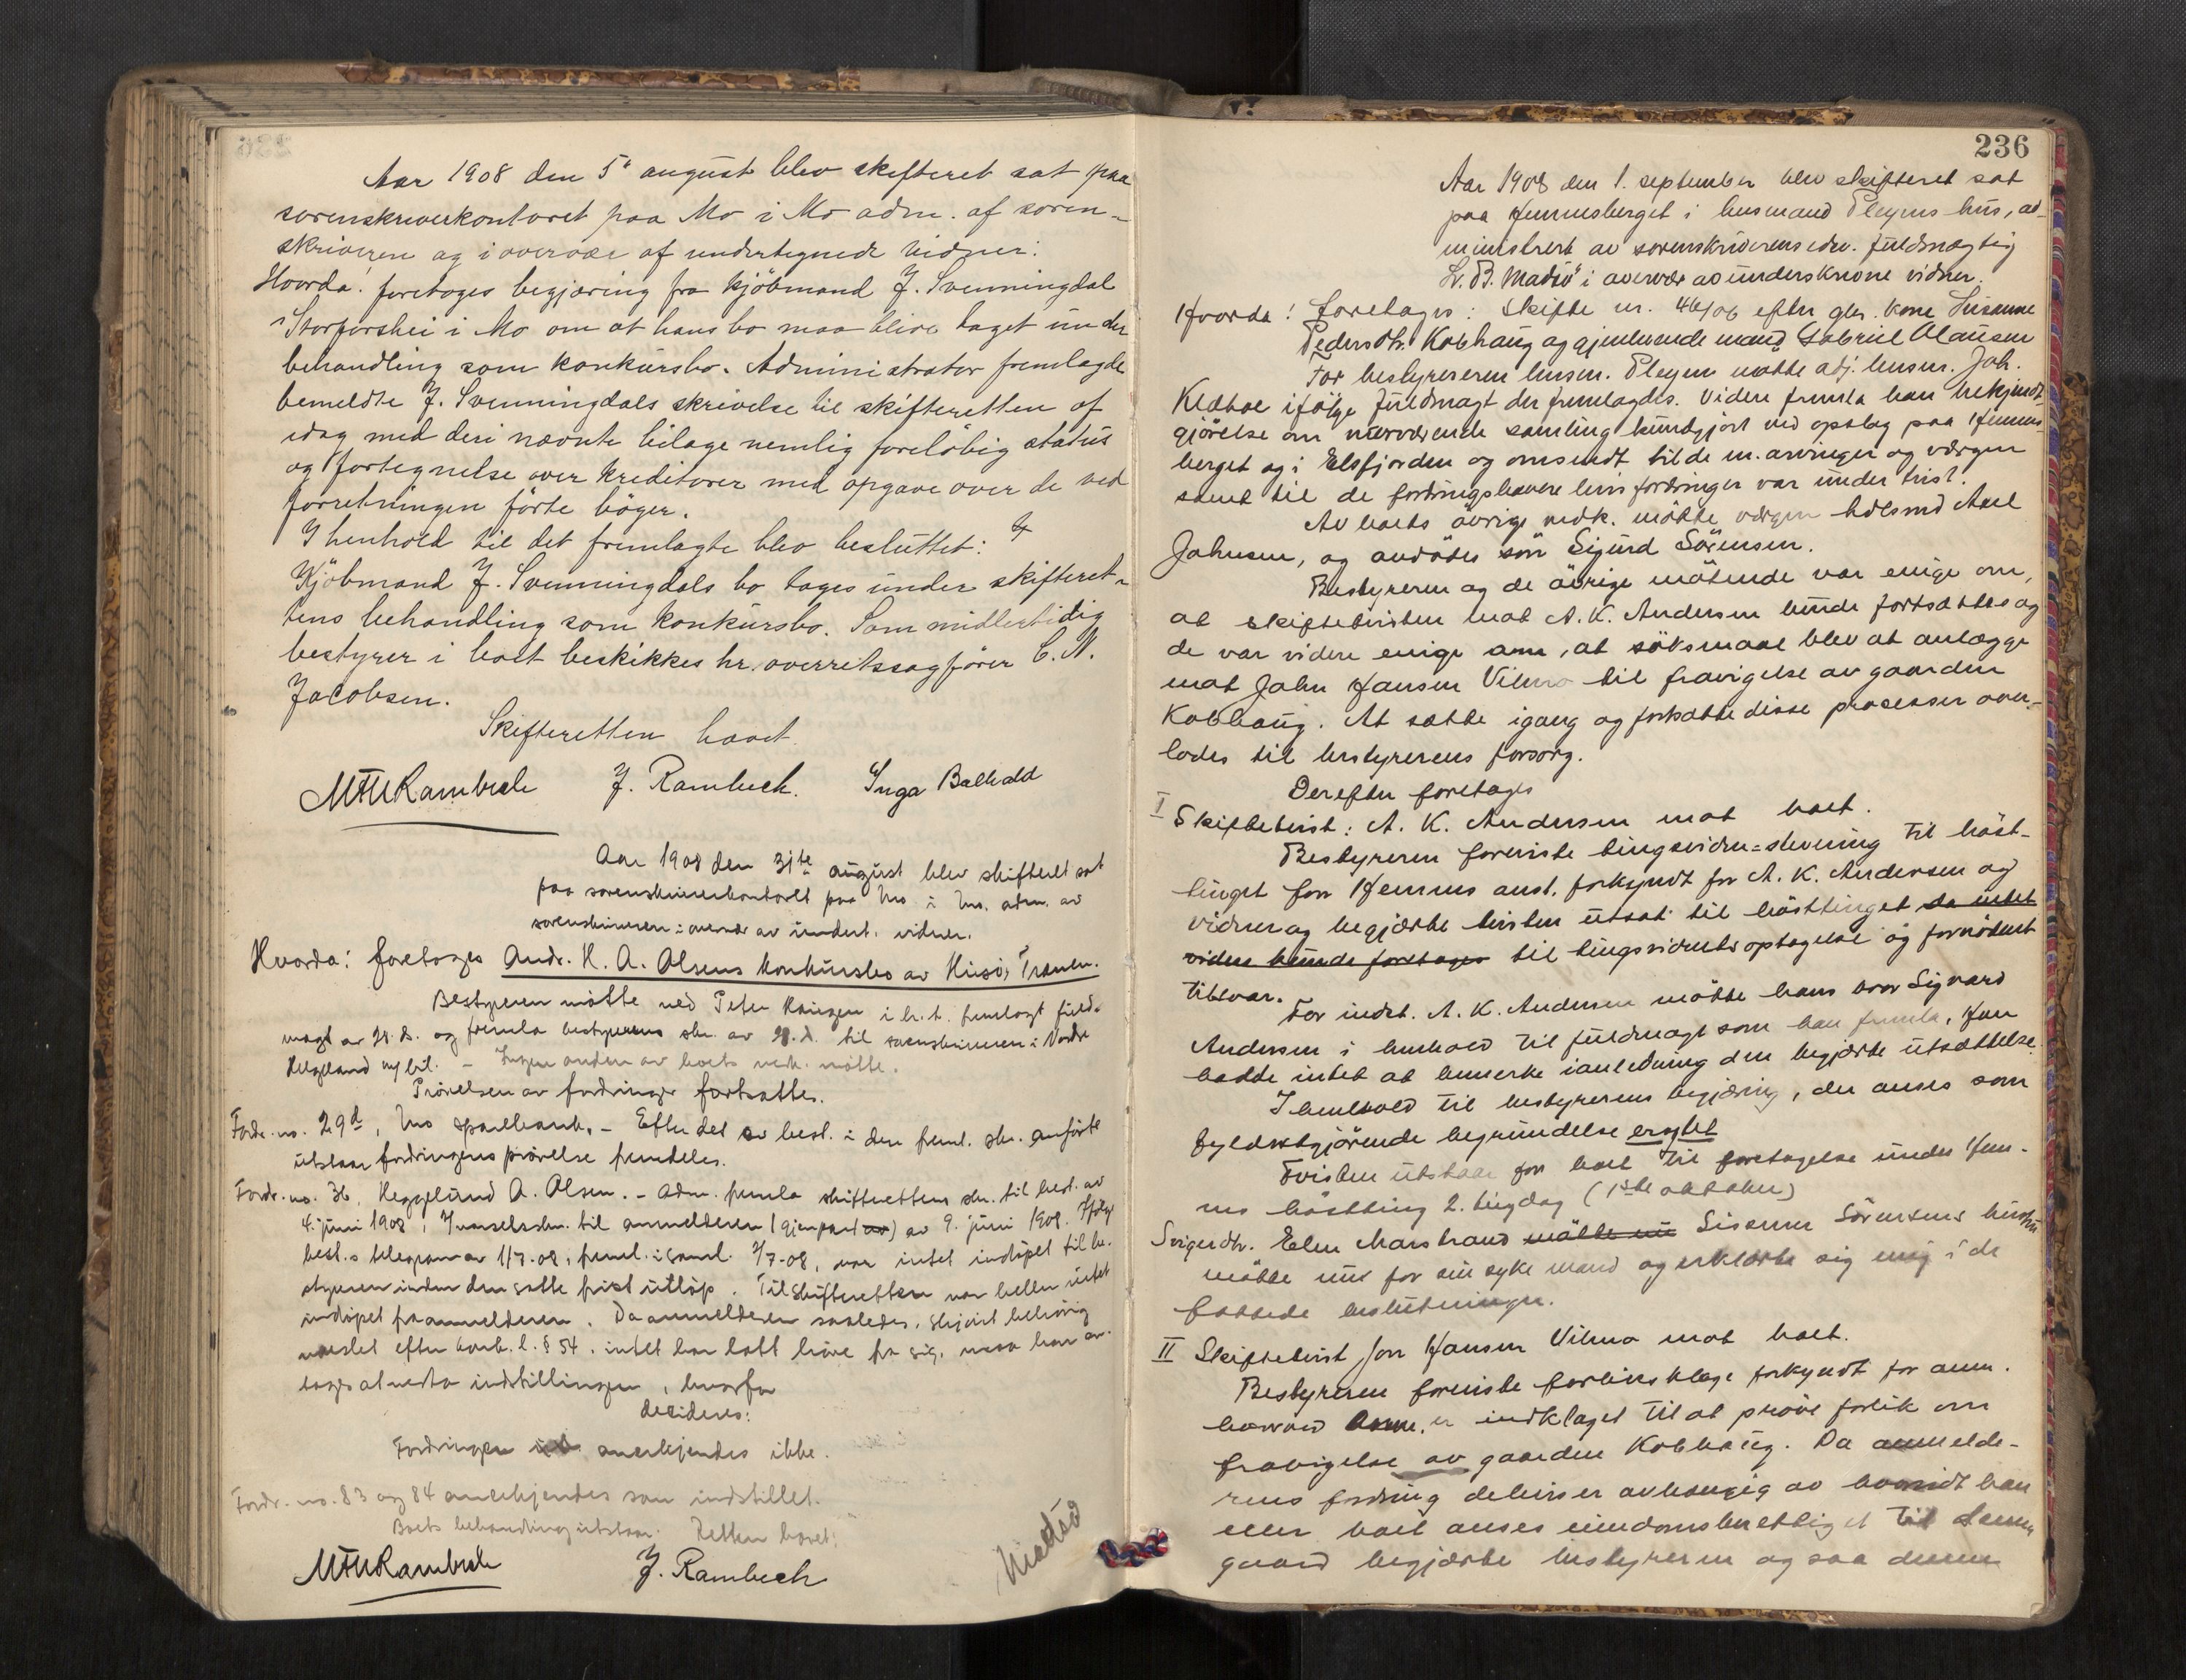 Aar 1908 den 5' august blev skifteret sat paa
sorenskriverkontoret paa Mo i Mo adm. af soren-
skriveren og i overvær af undertegnede vidner:
Hvorda! foretoges begjæring fra kjöbmand J. Svenningdal
Storforshei i Mo om at hans bo maa blive taget under
behandling som konkursbo. Administrator fremlagde
bemeldte J. Svenningdals skrivelse til skifteretten af
idag med deri nævnte bilage nemlig foreløbig status
og fortegnelse over kreditorer med opgave over de ved
forretningen förte böger.
I henhold til det fremlagte blev besluttet:
Kjöbmand J. Svenningdals bo tages under skifteret-
tens behandling som konkursbo. Som midlertidig
bestyrer i boet beskikkes hr. overretssagförer C. N.
Jacobsen.
Skifteretten hævet.
MTHRambech J. Rambech. Inga
Aar 1908 den 31te august blev skifteret sat
paa sorenskriverkontoret paa Mo i Mo. adm. av
sorenskriveren i overvær av undert. vidner.
Hvorda: foretoges Andr. H. A. Olsens konkursbo av Husö, Trænen.
Bestyreren mötte ved Peter i h. t. fremlagt fuld-
magt av 28. ds. og fremla bestyrerens skr. av 28. d. til sorenskriveren i Nordre
Helgeland m/ bil. - Ingen anden av boets vedk. mötte.
Prövelsen av fordringer fortsattes.
Fordr. no. 29d, Mo sparebank. - Efter det av best. i den freml. skr. anförte
utstaar fordringens prövelse fremdeles.
Fordr. no. 36, Heggelund A. Olsen. - Adm. fremla skifterettens skr. til best. av
4. juni 1908, skr. til anmelderen (gjenpart) av 9. juni 1908. Ifölge
best.s telegram av 1/7-08, freml. i saml. 2/7-08, var intet indlöpet til be-
styreren inden den satte frist utlöp. Til skifteretten var heller intet
indlöpet fra anmelderen. Da anmelderen saaledes, skjönt behörig
varslet efter konk. l. § 54, intet har latt höre fra sig, maa han an-
tages at vedta indstillingen, hvorfor
decideres:
Fordringen anerkjendes ikke.
Fordr. no. 83 og 84 anerkjendes som indstillet.
Boets behandling utstaar. Retten hævet:
MTHRambech J. Rambech
236
Aar 1908 den 1. september blev skifteret sat
paa Hemnesberget i husmand Pleyms hus, ad-
ministrert av sorenskriverens edsv. fuldmægtig
Lr. B. Madsö i overvær av underskrevne vidner.
Hvorda! foretages: Skifte nr. 46/06 efter gln. kone Susanne
Pedersdtr. Kobhaug og gjenlevende mand Gabriel Olausen
For bestyreren lensm. Pleym mötte adj. lensm. Joh.
Klæboe ifölge fuldmagt der fremlagdes. Videre fremla han bekjendt-
gjörelse om nærværende samling kundgjort ved opslag paa Hemnes-
berget og i Elsfjorden og omsendt til de m. arvinger og vergen
samt til de fordringshavere hvis fordringer var under tvist.
Av boets övrige vedk. mötte vergen Axel
Johnsen, og avdödes sön Sigurd Sörensen.
Bestyreren og de övrige mötende var enige om,
at skiftetvisten mot A. K. Andersen burde fortsættes og
de var videre enige om, at söksmaal blev at anlægge
mot John Hansen Vilmo til fravigelse av gaarden
Kobhaug. At sætte igang og fortsætte disse processer over-
lodes til bestyrerens forsorg.
Derefter foretages
I Skiftetvist: A. K. Andersen mot boet.
Bestyreren foreviste tingsvidne-stevning til höst-
tinget for Hemnes anst. forkyndt for A. K. Andersen og
vidner og begjærte tvisten utsat til hösttinget da intet
videre kunde foretages til tingsvidnets optagelse og fornödent
tilsvar.
For indst. A. K. Andersen mötte hans bror Sigvard
Andersen i henhold til fuldmagt som han fremla, Han
hadde intet at bemerke i anledning den begjærte utsættelse.
I henhold til bestyrerens begjæring, der anses som
fyldestgjörende begrundelse
Tvisten utstaar for boet til foretagelse under Hem-
nes hösting 2. tingdag (1ste oktober)
Svigerdtr. Elen Marstrand mötte nu Sörensens hustru
mötte nu for sin syke mand og erklærte sig enig i de
fattede beslutninger.
II Skiftetvist Jon Hansen Vilmo mot boet.
Bestyreren foreviste forliksklage forkyndt for anm.
hvorved anm. er indklaget til at pröve forlik om
fravigelse av gaarden Kobhaug. Da anmelde-
rens fordring delvis er avhængig av hvorvidt han
eller boet anses eiendomsberettiget til denne
gaard begjærte bestyreren ogsaa denne